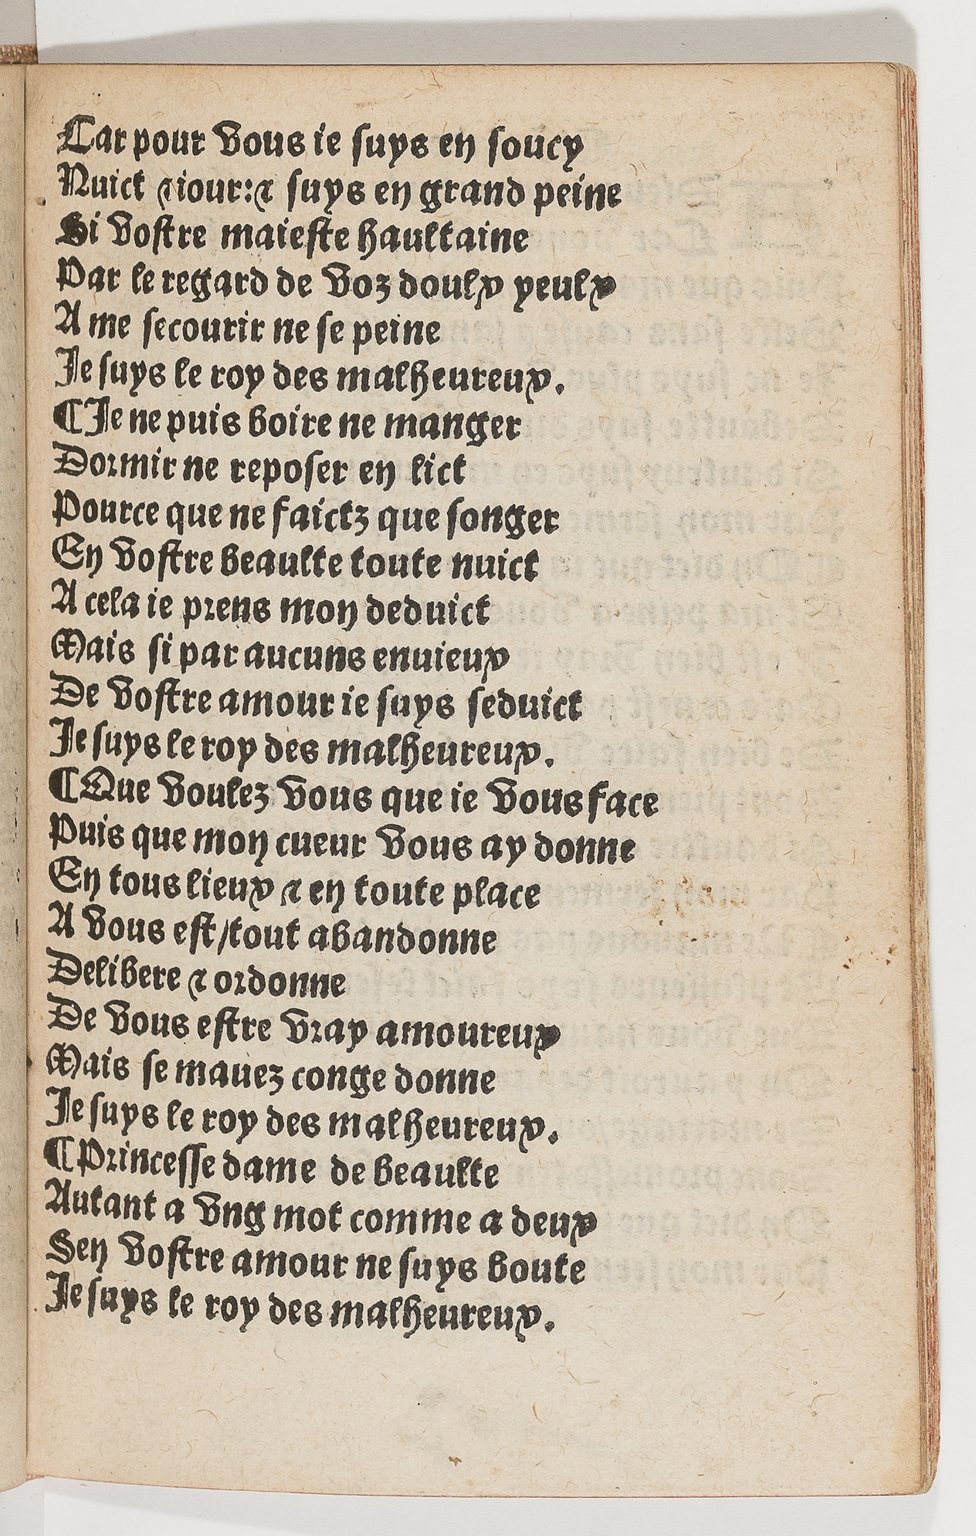 Car pour vous ie suys en soucy
Nuict ⁊ iour: ⁊ suys en grand peine
Si vostre maieste haultaine
Par le regard de voz doulx yeulx
A me secourir ne se peine
Je suys le roy des malheureux.
¶ Je ne puis boire ne manger
Dormir ne reposer en lict
Pource que ne faictz que songer
En vostre beaulte toute nuict
A cela ie prens mon deduict
Mais si par aucuns enuieux
De vostre amour ie suys seduict
Je suys le roy des malheureux.
¶ Que voulez vous que ie vous face
Puis que mon cueur vous ay donne
En tous lieux ⁊ en toute place
A vous est/tout abandonne
Delibere ⁊ ordonne
De vous estre vray amoureux
Mais se mauez conge donne
Je suys le roy des malheureux.
¶ Princesse dame de beaulte
Autant a vng mot comme a deux
Sen vostre amour ne suys boute
Je suys le roy des malheureux.